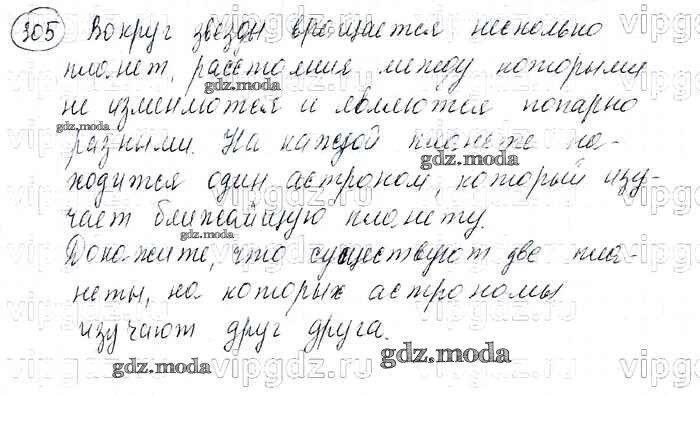 305 Вокруг звезды вращается несколько
планет, расстояния между которыми
не изменяются и являются попарно
разными. На каждой планете на-
ходится один астроном, который изу-
чает ближайщую планету.
Докажите, что существуют две пла-
неты, на которых астрономы
изучают друг друга.
gdz.moda
gdz.moda
gdz.moda
gdz.moda
gdz.moda
gdz.moda